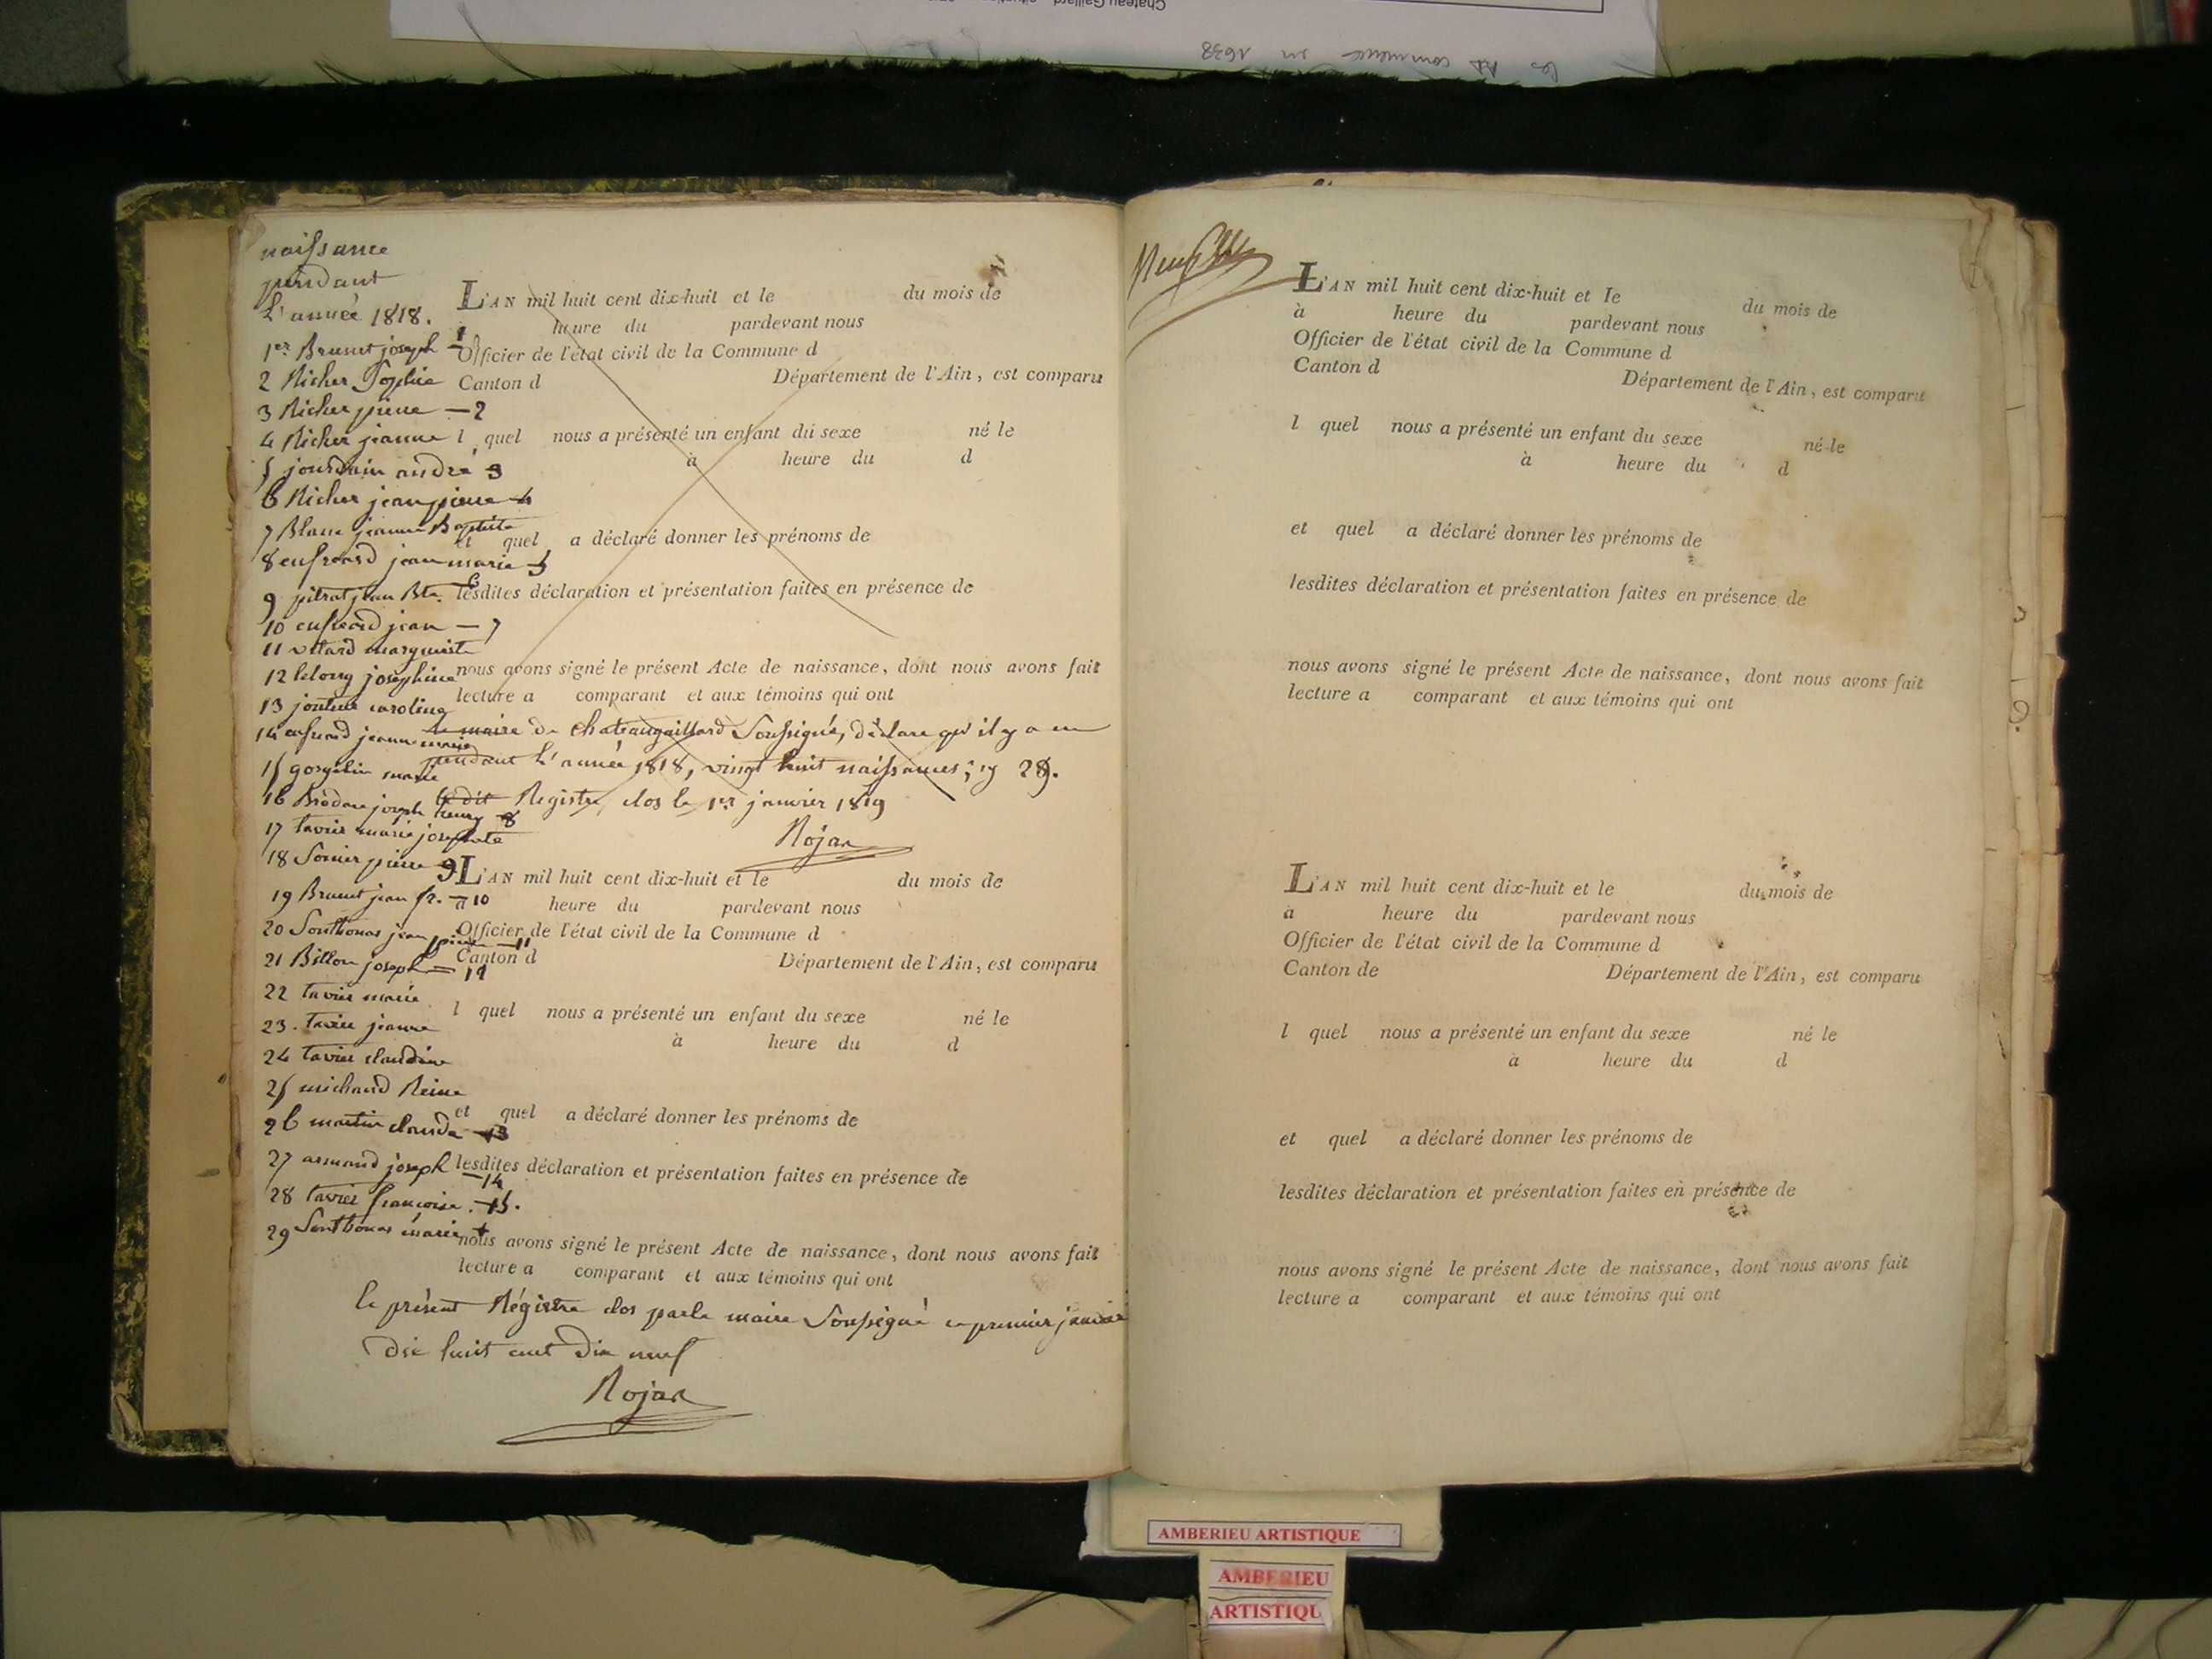 naissance
pendant
L'année 1818.
1er Brunet joseph - 1
2 Richer Sophie
3 Richer pierre - 2
4 Richer jeanne
5 jourdain andré 3
6 Richer jean pierre 4
7 Blanc jeanne Baptiste
8 enfreard jean marie 5
9 pitrat jean Bte. 6
10 enfreard jean - 7
11 vettard marguerite
12 lelong josephine
13 caroline
14 jeanne marie
15 marie
16 joseph henry 8
17 tavier marie josephte
18 Somier pierre 9
19 Brunet jean fr. - 10
20 Sonthonas jean pierre - 11
21 Billon joseph - 12
22 tavier marie
23. tavier jeanne
24 tavier claudine
25 michaud Reine
26 martin claude - 13
27 armand joseph - 14
28 tavier francoise. - 15.
29 Sonthonas marie +
L'AN mil huit cent dix-huit et le du mois de
à heure du pardevant nous
Officier de l'état civil de la Commune d
Canton d Département de l'Ain, est comparu
l quel nous a présenté un enfant du sexe né le
à heure du d
et quel a déclaré donner les prénoms de
lesdites déclaration et présentation faites en présence de
nous avons signé le présent Acte de naissance, dont nous avons fait
lecture a comparant et aux témoins qui ont
le maire de chateaugaillard Soussigné, déclare qu'il y a eu
pendant l'année 1818, vingt huit naissances; 29.
Registre clos le 1er janvier 1819
Rojar
L'AN mil huit cent dix-huit et le du mois de
à heure du pardevant nous
Officier de l'état civil de la Commune d
Canton d Département de l'Ain, est comparu
l quel nous a présenté un enfant du sexe né le
à heure du d
et quel a déclaré donner les prénoms de
lesdites déclaration et présentation faites en présence de
nous avons signé le présent Acte de naissance, dont nous avons fait
lecture a comparant et aux témoins qui ont
le présent Régistre clos par le maire Soussigné ce premier janvier
dix huit cent dix neuf
Rojar
L'AN mil huit cent dix-huit et le du mois de
à heure du pardevant nous
Officier de l'état civil de la Commune d
Canton d Département de l'Ain, est comparu
l quel nous a présenté un enfant du sexe né le
à heure du d
et quel a déclaré donner les prénoms de
lesdites déclaration et présentation faites en présence de
nous avons signé le présent Acte de naissance, dont nous avons fait
lecture a comparant et aux témoins qui ont
L'AN mil huit cent dix-huit et le du mois de
à heure du pardevant nous
Officier de l'état civil de la Commune d
Canton de Département de l'Ain, est comparu
l quel nous a présenté un enfant du sexe né le
à heure du d
et quel a déclaré donner les prénoms de
lesdites déclaration et présentation faites en présence de
nous avons signé le présent Acte de naissance, dont nous avons fait
lecture a comparant et aux témoins qui ont
AMBERIEU ARTISTIQUE
AMBERIEU
ARTISTIQU
Chateau Gaillard
commence en 1638